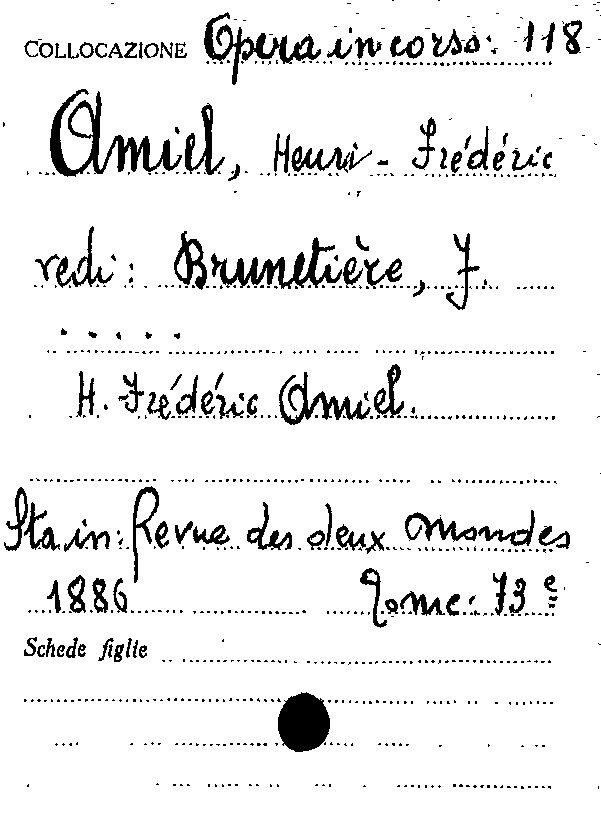 COLLOCAZIONE Opera in corso: 118
Amiel, Henri-Frédéric
vedi: Brunetière, F.
.....
H. Frédéric Amiel.
Sta in: Revue des deux Mondes
1886 Tome: 73e
Schede figlie